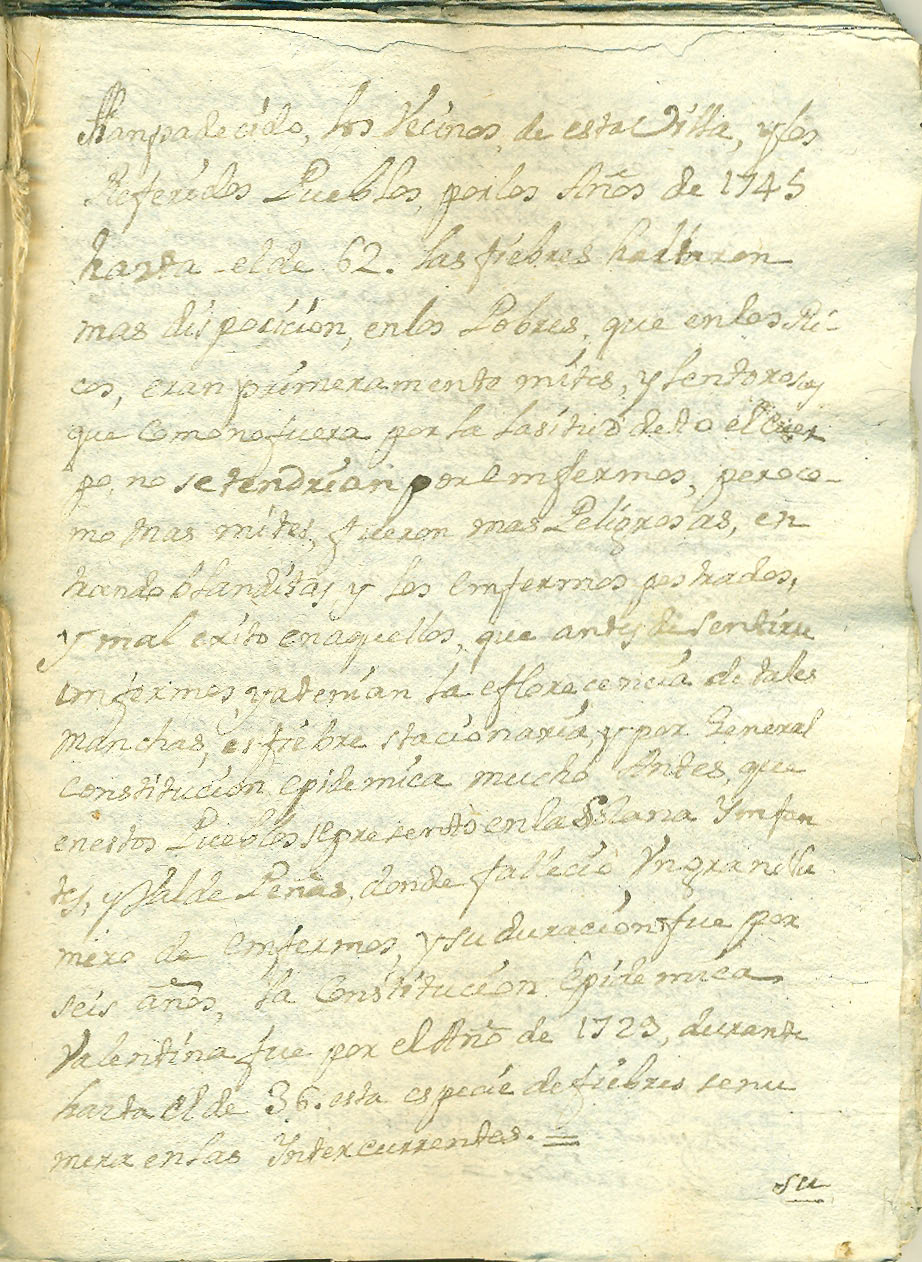 Hanpadecido, los Vecinos, de esta Villa, y los
Referidos Pueblos, por los Años de 1745
hasta el de 62. las fiebres hallaron
mas disposicion, en los Pobres, que en los Ri-
cos, eran primeramente mites, y lentores
que como no fuera por la lasitud de to el Cuer
po, no se tendrian por emfermos, pero co-
mo mas mites, fueron mas Peligrosas, en
trando blanditas y los emfermos postrados,
y mal exito en aquellos, que antes de sentirse
emfermos, ya tenian la eflorecencia de tales
manchas, es fiebre stacionaria, y por General
constitucion epidemica mucho Antes, que
en estos Pueblos se presentò en la Solana Ymfan
tes, y Valde Peñas, donde fallecio Yn gran Nu
mero de emfermos, y su duracion fue por
seis años, la Constitucion Epidemica
Valentina fue por el Año de 1723, durante
hasta el de 36. esta especie de fiebres se nu
mera en las Yntercurrentes. =
su